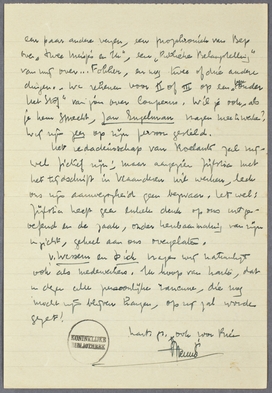 een paar andere verzen, een prozakroniek van Bep
over "twee meisjes en ik", een "Kritische Belangstelling"
van mij over ... Fokker, en nog twee of drie andere
dingen. We rekenen voor II of III op een "Onder
het vergrootglas" van jou over Couperus. Wil je ook, als
je hem spreekt, Jan Engelman vragen mee te werken?
Wij zijn zeer op zijn persoon gesteld.
Het redacteurschap van Roelants zal wij-
wel fictief zijn; maar aangezien Zijlstra met
het tijdschrift in Vlaanderen wil werken, leek
ons zijn aanwezigheid geen bezwaar. Let wel:
Zijlstra heeft geen enkele druk op ons uitge-
oefend en de zaak, onder handhaving van zijn
inzicht, geheel aan ons overgelaten.
v. Wessem en Dick vragen wij natuurlijk
ook als medewerkers. In hoop van harte, dat
in dezen alle persoonlijke rancune, die nog
mocht zijn blijven hangen, op zij zal worden
gezet!
hart. gr., ook voor
Menno
KONINKLIJKE
BIBLIOTHEEK